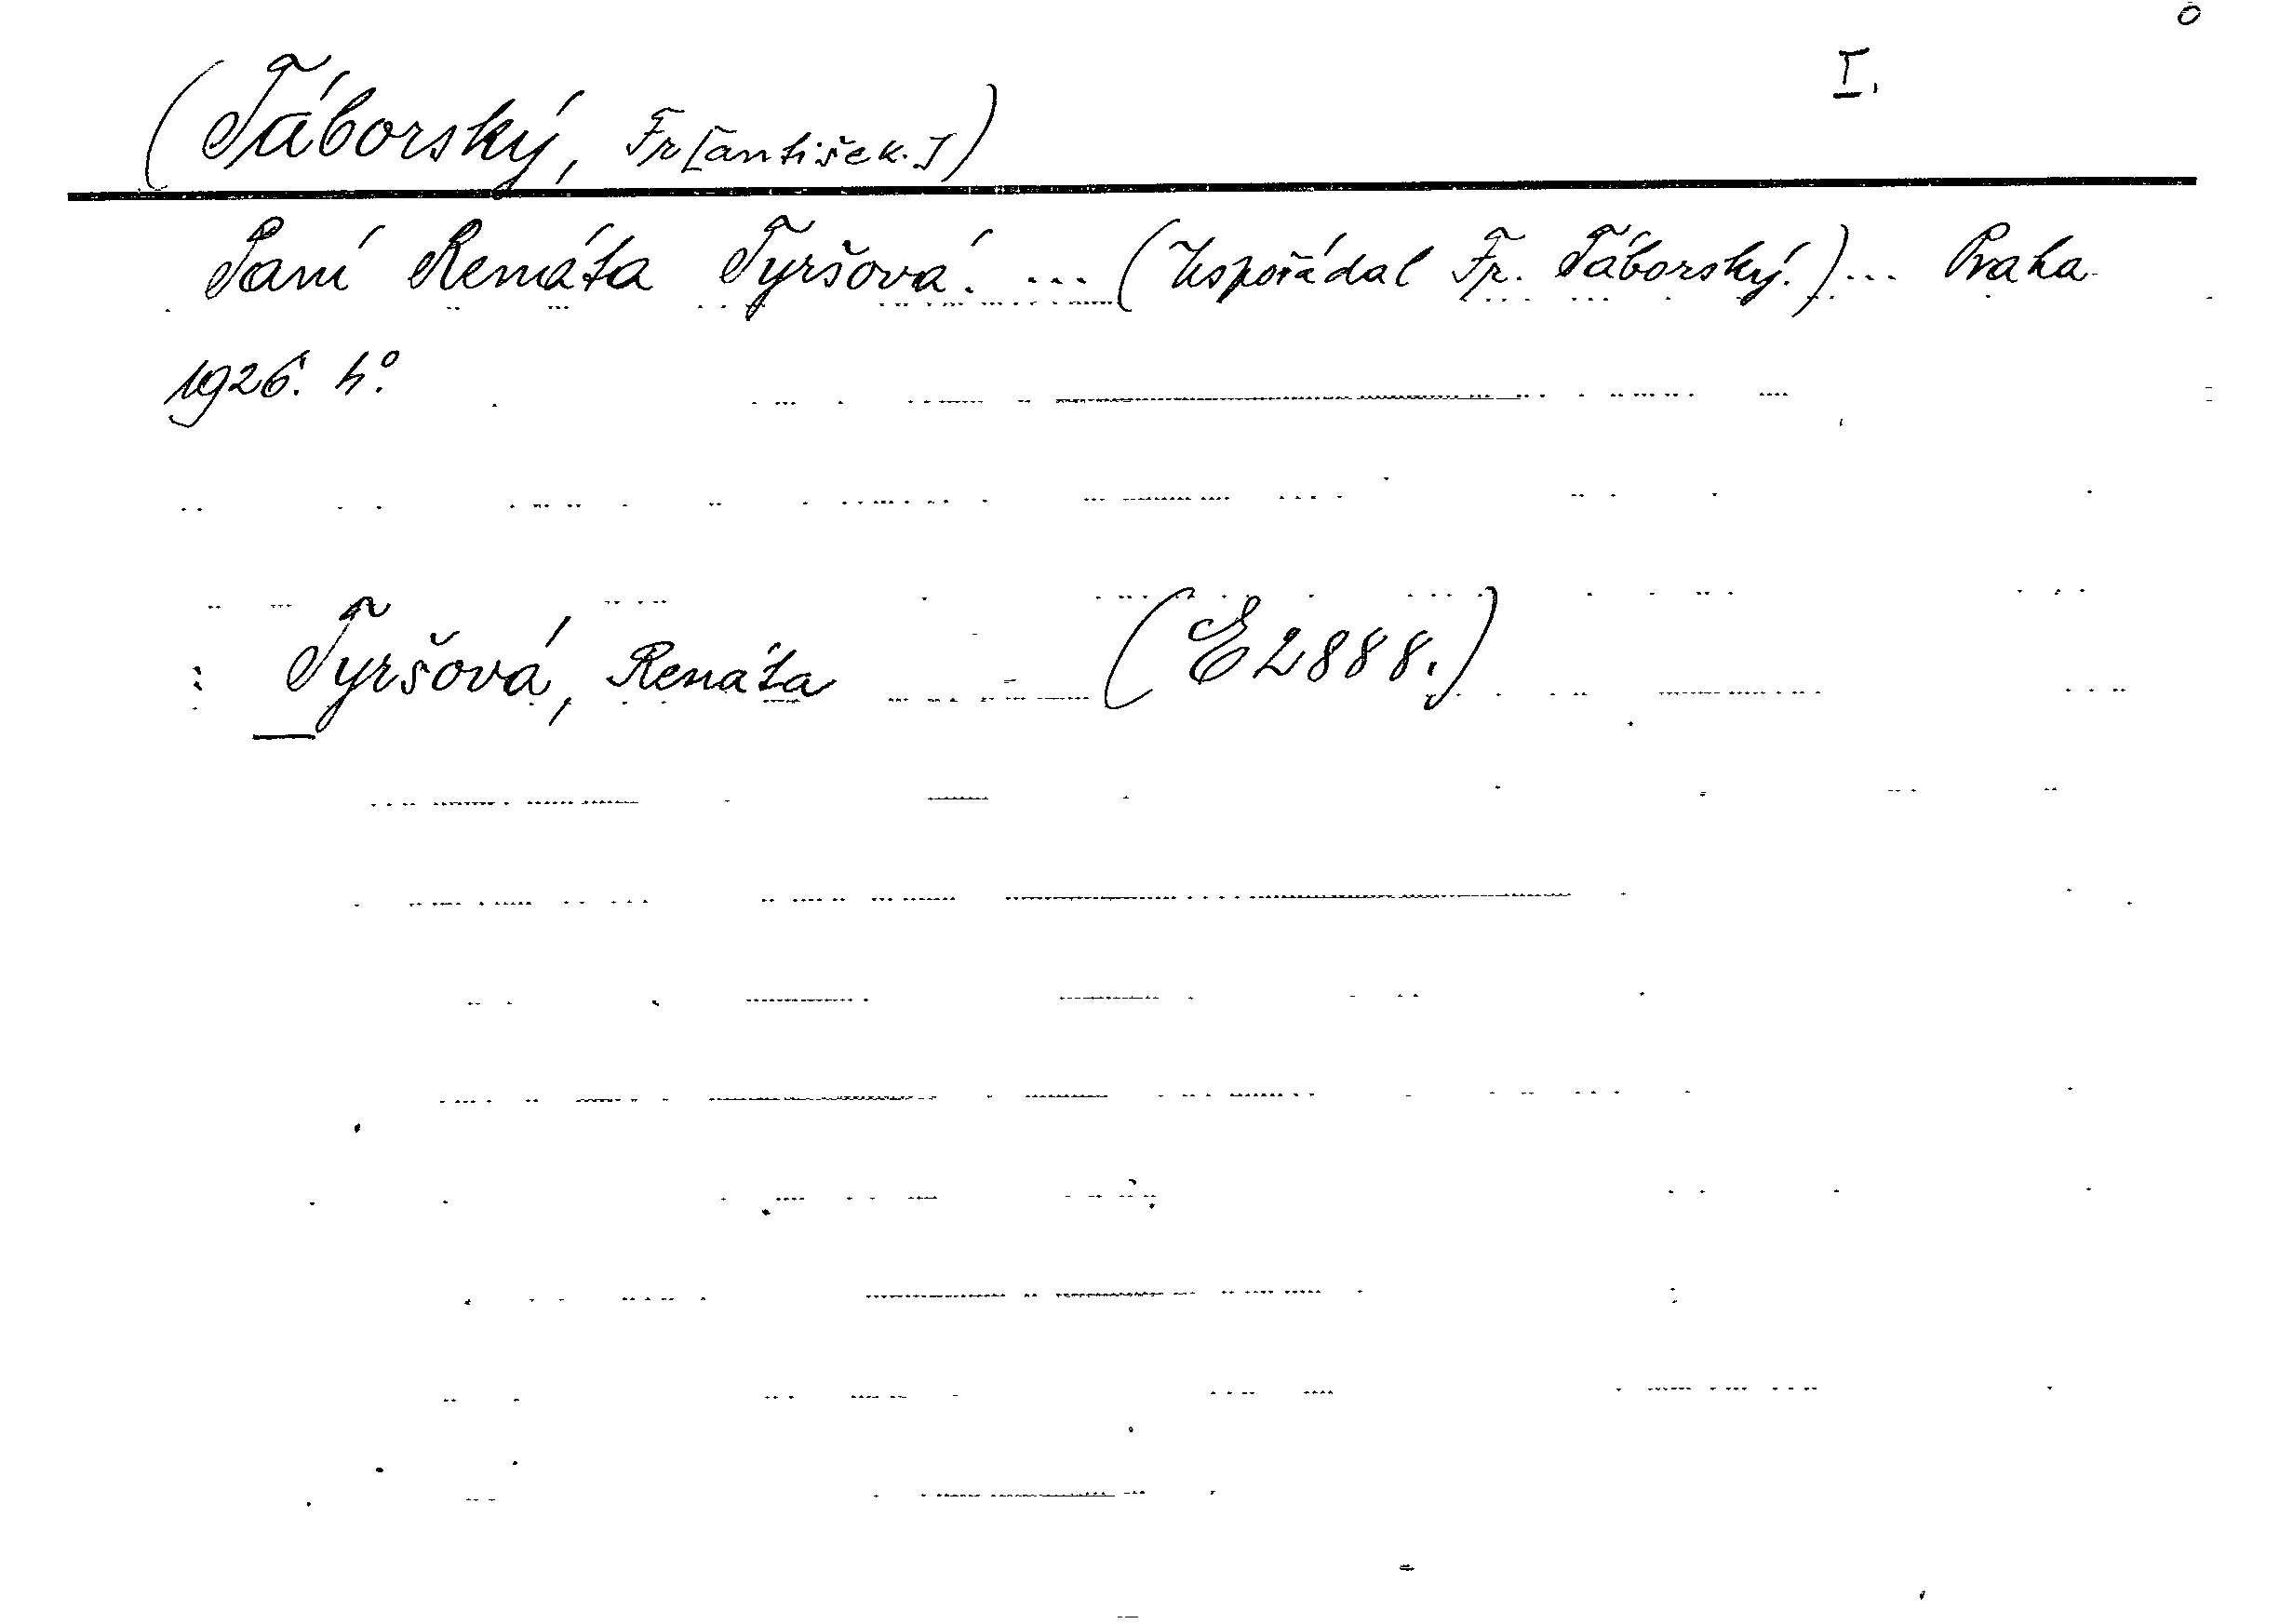 I.
(Táborský, Fr[antišek.])
Paní Renáta Tyršová. ... (Uspořádal Fr. Táborský.) ... Praha
1926. 4°.
Tyršová, Renáta (E 2888.)